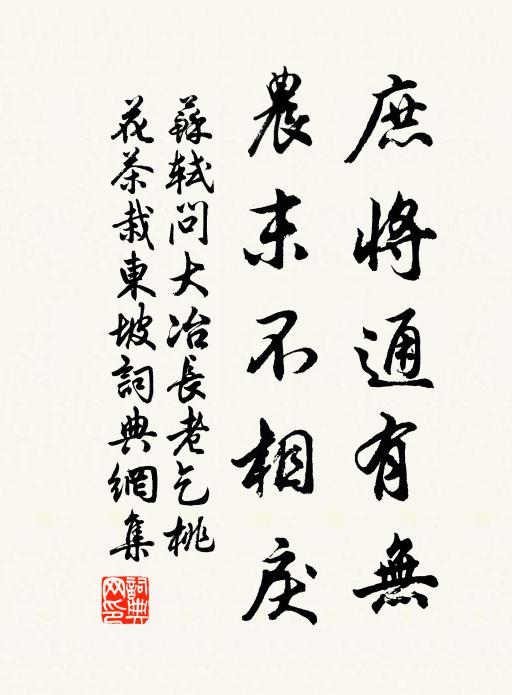 庶將通有無
農末不相戾
蘇軾問大冶長老乞桃
花茶栽東坡詞典網集
詞典
网印